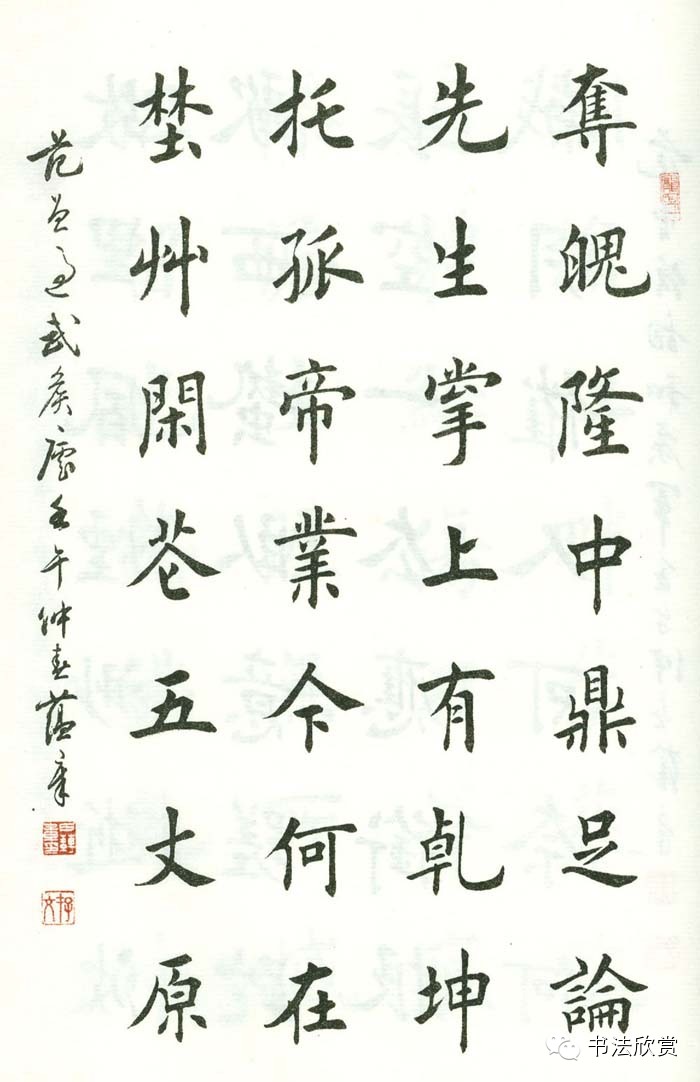 奪魄隆中鼎足論
先生掌上有乾坤
托孤帝業今何在
埜艸閑花五丈原
范曾過武侯廬壬午仲春蘊章
书法欣赏